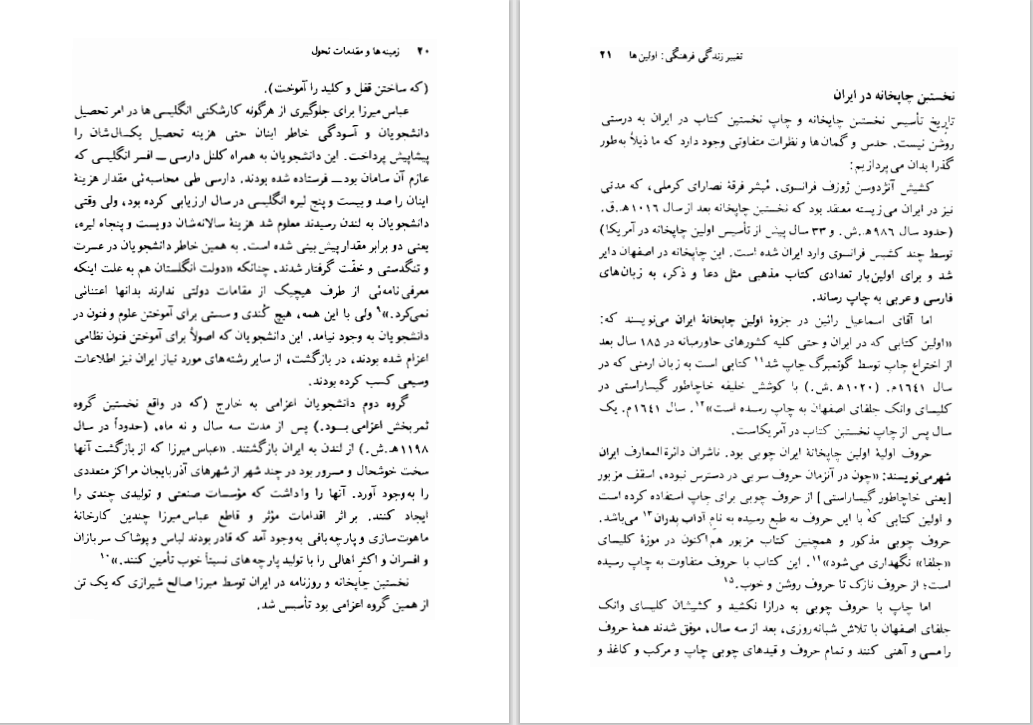 ۲۰ زمینه‌ها و مقدمات تحول
(که ساختن قفل و کلید را آموخت).
عباس‌میرزا برای جلوگیری از هرگونه کارشکنی انگلیسی‌ها در امر تحصیل
دانشجویان و آسودگی خاطر اینان حتی هزینه تحصیل یکسال‌شان را
پیشاپیش پرداخت. این دانشجویان به همراه کلنل دارسی ــ افسر انگلیسی که
عازم آن سامان بود ــ فرستاده شده بودند. دارسی طی محاسبه‌ئی مقدار هزینهٔ
اینان را صد و بیست و پنج لیره انگلیسی در سال ارزیابی کرده بود، ولی وقتی
دانشجویان به لندن رسیدند معلوم شد هزینهٔ سالانه‌شان دویست و پنجاه لیره،
یعنی دو برابر مقدار پیش‌بینی شده است. به همین خاطر دانشجویان در عسرت
و تنگدستی و خفّت گرفتار شدند، چنانکه «دولت انگلستان هم به علت اینکه
معرفی‌نامه‌ئی از طرف هیچیک از مقامات دولتی ندارند بدانها اعتنائی
نمی‌کرد.»۹ ولی با این همه، هیچ کُندی و سستی برای آموختن علوم و فنون در
دانشجویان به وجود نیامد. این دانشجویان که اصولاً برای آموختن فنون نظامی
اعزام شده بودند، در بازگشت، از سایر رشته‌های مورد نیاز ایران نیز اطلاعات
وسیعی کسب کرده بودند.
گروه دوم دانشجویان اعزامی به خارج (که در واقع نخستین گروه
ثمربخش اعزامی بـود.) پس از مدت سه سال و نه ماه، (حدوداً در سال
۱۱۹۸هـ.ش.) از لندن به ایران بازگشتند. «عباس‌میرزا که از بازگشت آنها
سخت خوشحال و مسرور بود در چند شهر از شهرهای آذربایجان مراکز متعددی
را به‌وجود آورد. آنها را واداشت که مؤسسات صنعتی و تولیدی چندی را
ایجاد کنند. بر اثر اقدامات مؤثر و قاطع عباس‌میرزا چندین کارخانهٔ
ماهوت‌سازی و پارچه‌بافی به‌وجود آمد که قادر بودند لباس و پوشاک سربازان
و افسران و اکثر اهالی را با تولید پارچه‌های نسبتاً خوب تأمین کنند.»۱۰
نخستین چاپخانه و روزنامه در ایران توسط میرزا صالح شیرازی که یک تن
از همین گروه اعزامی بود تأسیس شد.
تغییر زندگی فرهنگی: اولین‌ها ۲۱
نخستین چاپخانه در ایران
تاریخ تأسیس نخستین چاپخانه و چاپ نخستین کتاب در ایران به درستی
روشن نیست. حدس و گمان‌ها و نظرات متفاوتی وجود دارد که ما ذیلاً به‌طور
گذرا بدان می‌پردازیم:
کشیش آنژدوسن ژوزف فرانسوی، مُبشر فرقهٔ نصارای کرملی، که مدتی
نیز در ایران می‌زیسته معتقد بود که نخستین چاپخانه بعد از سال ۱۰۱۶هـ.ق.
(حدود سال ۹۸۶هـ.ش. و ۳۳ سال پیش از تأسیس اولین چاپخانه در آمریکا)
توسط چند کشیش فرانسوی وارد ایران شده است. این چاپخانه در اصفهان دایر
شد و برای اولین‌بار تعدادی کتاب مذهبی مثل دعا و ذکر، به زبان‌های
فارسی و عربی به چاپ رساند.
اما آقای اسماعیل رائین در جزوهٔ اولین چاپخانهٔ ایران می‌نویسند که:
«اولین کتابی که در ایران و حتی کلیه کشورهای خاورمیانه در ۱۸۵ سال بعد
از اختراع چاپ توسط گوتمبرگ چاپ شد۱۱ کتابی است به زبان ارمنی که در
سال ۱۶۴۱م. (۱۰۲۰هـ.ش.) با کوشش خلیفه خاچاطور گیساراستی در
کلیسای وانک جلفای اصفهان به چاپ رسیده است»۱۲. سال ۱۶۴۱م. یک
سال پس از چاپ نخستین کتاب در آمریکاست.
حروف اولیهٔ اولین چاپخانهٔ ایران چوبی بود. ناشران دائرةالمعارف ایران
شهر می‌نویسند: «چون در آنزمان حروف سربی در دسترس نبوده، اسقف مزبور
[یعنی خاچاطور گیساراستی] از حروف چوبی برای چاپ استفاده کرده است
و اولین کتابی که با این حروف به طبع رسیده به نام آداب بدران۱۳ می‌باشد.
حروف چوبی مذکور و همچنین کتاب مزبور هم‌اکنون در موزهٔ کلیسای
«جلفا» نگهداری می‌شود»۱۴. این کتاب با حروف متفاوت به چاپ رسیده
است؛ از حروف نازک تا حروف روشن و خوب.۱۵
اما چاپ با حروف چوبی به درازا نکشید و کشیشان کلیسای وانک
جلفای اصفهان با تلاش شبانه‌روزی، بعد از سه سال، موفق شدند همهٔ حروف
را مسی و آهنی کنند و تمام حروف و قیدهای چوبی چاپ و مرکب و کاغذ و